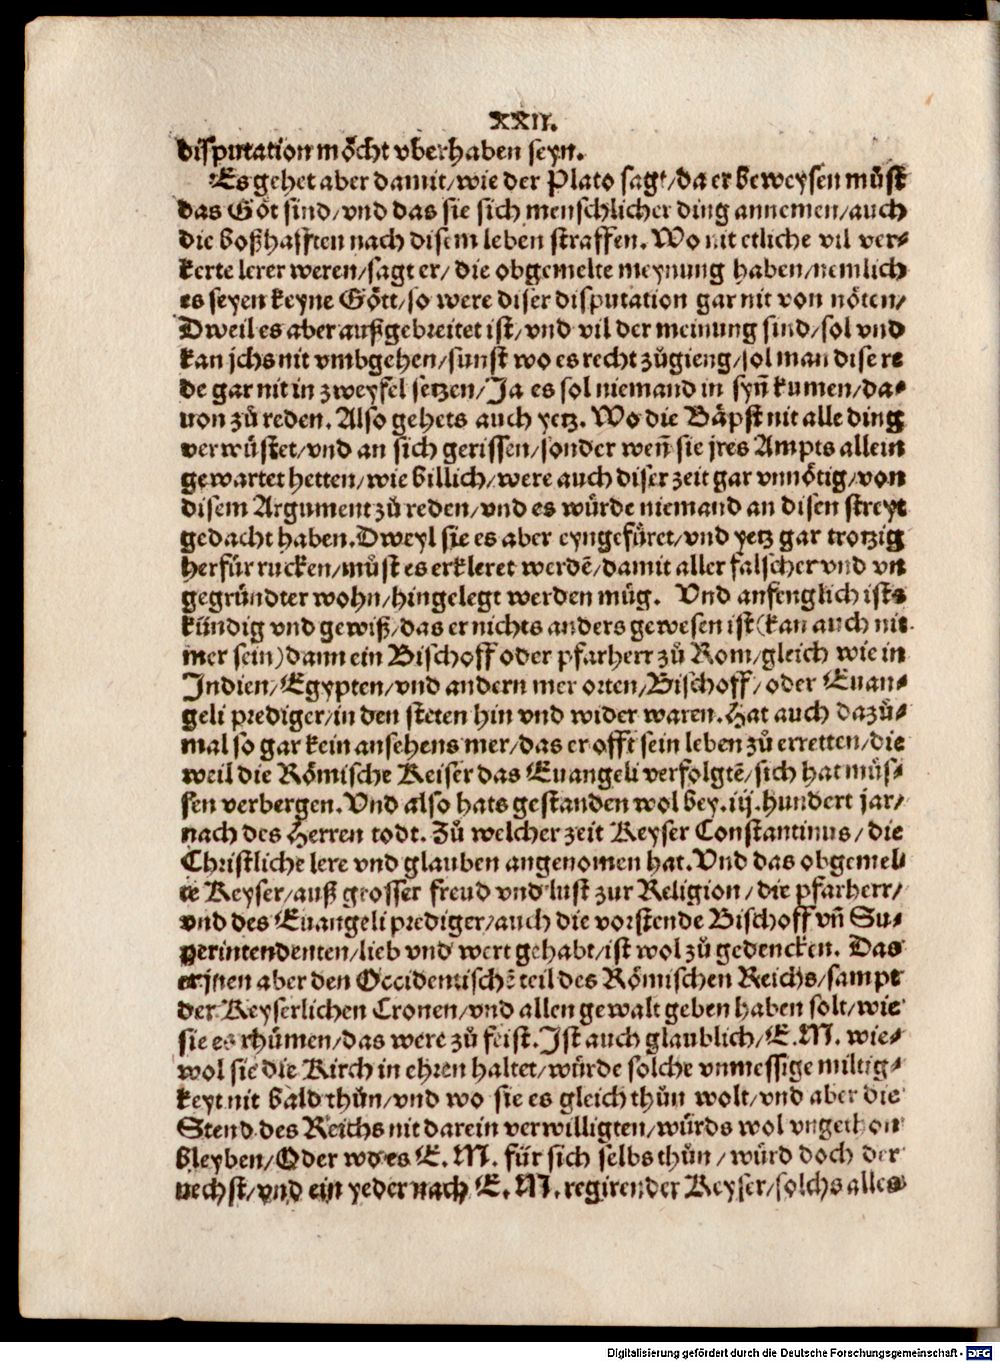 XXII.
disputation möcht vberhaben seyn.
Es gehet aber damit/wie der Plato sagt/da er beweysen můst
das Göt sind/vnd das sie sich menschlicher ding annemen/auch
die boßhafften nach disem leben straffen. Wo nit etliche vil ver-
kerte lerer weren/sagt er/die obgemelte meynung haben/nemlich
es seyen keyne Gött/so were diser disputation gar nit von nöten/
Dweil es aber außgebreitet ist/vnd vil der meinung sind/sol vnd
kan ichs nit vmbgehen/sunst wo es recht zůgieng/sol man dise re
de gar nit in zweyfel setzen/Ja es sol niemand in syn̄ kumen/da-
uon zů reden. Also gehets auch yetz. Wo die Bäpst nit alle ding
verwüstet/vnd an sich gerissen/sonder wen̄ sie jres Ampts allein
gewartet hetten/wie billich/were auch diser zeit gar vnnötig/von
disem Argument zů reden/vnd es würde niemand an disen streyt
gedacht haben. Dweyl sie es aber eyngefüret/vnd yetz gar trotzig
herfür rucken/můst es erkleret werdē/damit aller falscher vnd vn
gegründter wohn/hingelegt werden müg. Vnd anfenglich ists
kündig vnd gewiß/das er nichts anders gewesen ist (kan auch nit
mer sein) dann ein Bischoff oder pfarherr zů Rom/gleich wie in
Indien/Egypten/vnd andern mer orten/Bischoff/oder Euan-
geli prediger/in den steten hin vnd wider waren. Hat auch dazů-
mal so gar kein ansehens mer/das er offt sein leben zů erretten/die
weil die Römische Keiser das Euangeli verfolgtē/sich hat můs-
sen verbergen. Vnd also hats gestanden wol bey .iij. hundert jar/
nach des Herren todt. Zů welcher zeit Keyser Constantinus/die
Christliche lere vnd glauben angenomen hat. Vnd das obgemel-
te Keyser/auß grosser freud vnd lust zur Religion/die pfarherr/
vnd des Euangeli prediger/auch die vorstende Bischoff vn̄ Su-
perintendenten/lieb vnd wert gehabt/ist wol zů gedencken. Das
er jnen aber den Occidentischē teil des Römischen Reichs/sampt
der Keyserlichen Cronen/vnd allen gewalt geben haben solt/wie
sie es rhümen/das were zů feist. Ist auch glaublich/E.M. wie-
wol sie die Kirch in ehren haltet/würde solche vnmessige miltig-
keyt nit bald thůn/vnd wo sie es gleich thůn wolt/vnd aber die
Stend des Reichs nit darein verwilligten/würds wol vngethon
bleyben/Oder wo es E.M. für sich selbs thůn/würd doch der
nechst/vnd ein yeder nach E.M. regirender Keyser/solchs alles
Digitalisierung gefördert durch die Deutsche Forschungsgemeinschaft - DFG